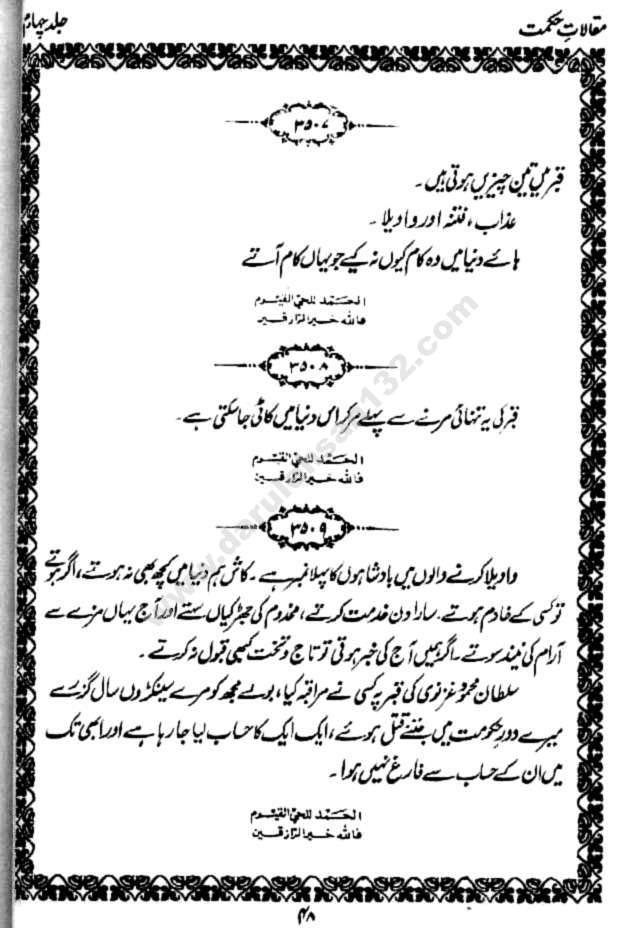 مقالاتِ حکمت
جلد چہارم
۳۵۰۷
قبر میں تین چیزیں ہوتی ہیں۔
عذاب، فتنہ اور واویلا۔
ہائے دنیا میں وہ کام کیوں نہ کیے جو یہاں کام آتے
الحمد للحی القیوم
فاللہ خیر الرازقین
۳۵۰۸
قبر کی یہ تنہائی مرنے سے پہلے مر کر اس دنیا میں کاٹی جاسکتی ہے۔
الحمد للحی القیوم
فاللہ خیر الرازقین
۳۵۰۹
واویلا کرنے والوں میں بادشاہوں کا پہلا نمبر ہے۔ کاش ہم دنیا میں کچھ بھی نہ ہوتے، اگر ہوتے
تو کسی کے خادم ہوتے۔ سارا دن خدمت کرتے، مخدوم کی جھڑکیاں سہتے اور آج یہاں مزے سے
آرام کی نیند سوتے۔ اگر ہمیں آج کی خبر ہوتی تو تاج و تخت کبھی قبول نہ کرتے۔
سلطان محمود غزنوی کی قبر پر کسی نے مراقبہ کیا، بولے مجھ کو مرے سینکڑوں سال گزرے
میرے دورِ حکومت میں جتنے قتل ہوئے، ایک ایک کا حساب لیا جا رہا ہے اور ابھی تک
میں ان کے حساب سے فارغ نہیں ہوا۔
الحمد للحی القیوم
فاللہ خیر الرازقین
۴۸
www.darulehsan132.com